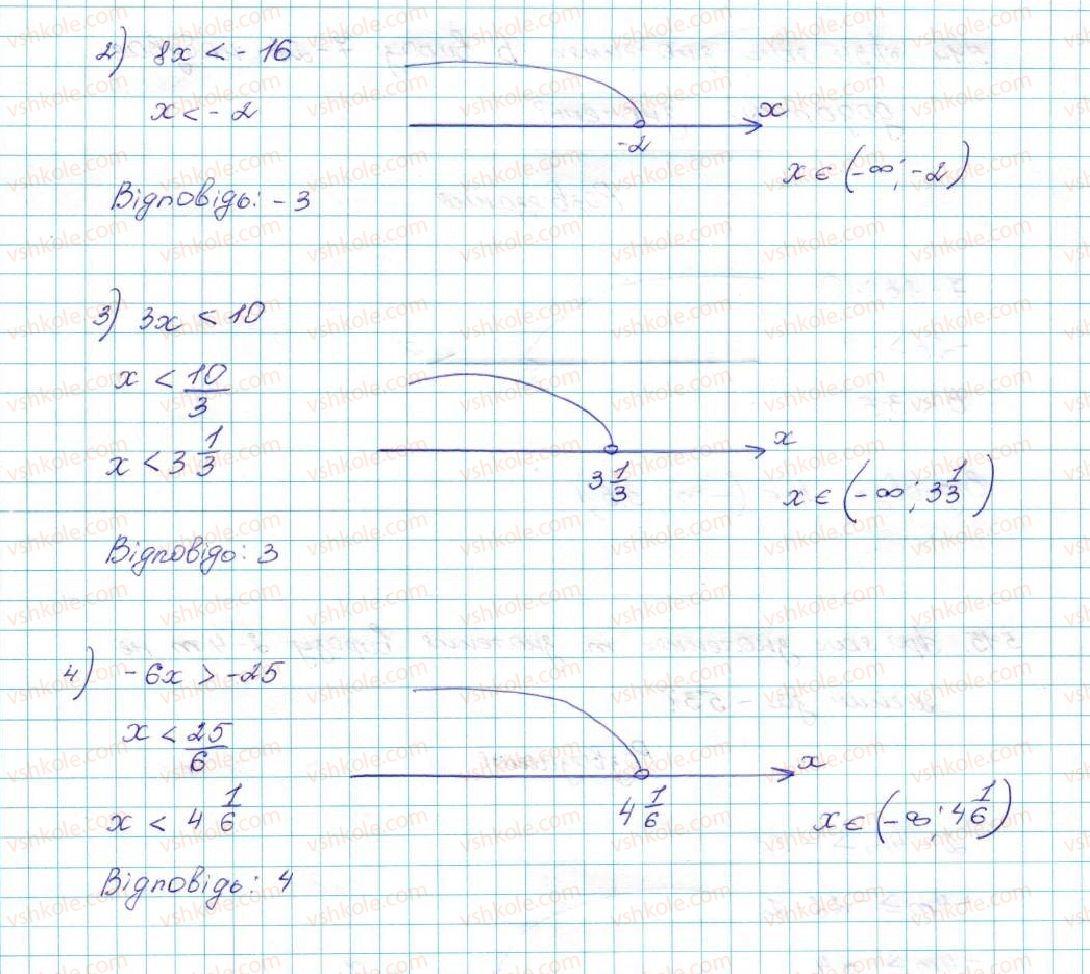 2) 8x < -16
x < -2
x
-2
x ∈ (-∞; -2)
Відповідь: -3
3) 3x < 10
x < 10/3
x < 3 1/3
x
3 1/3
x ∈ (-∞; 3 1/3)
Відповідь: 3
4) -6x > -25
x < 25/6
x < 4 1/6
x
4 1/6
x ∈ (-∞; 4 1/6)
Відповідь: 4
vshkole.com